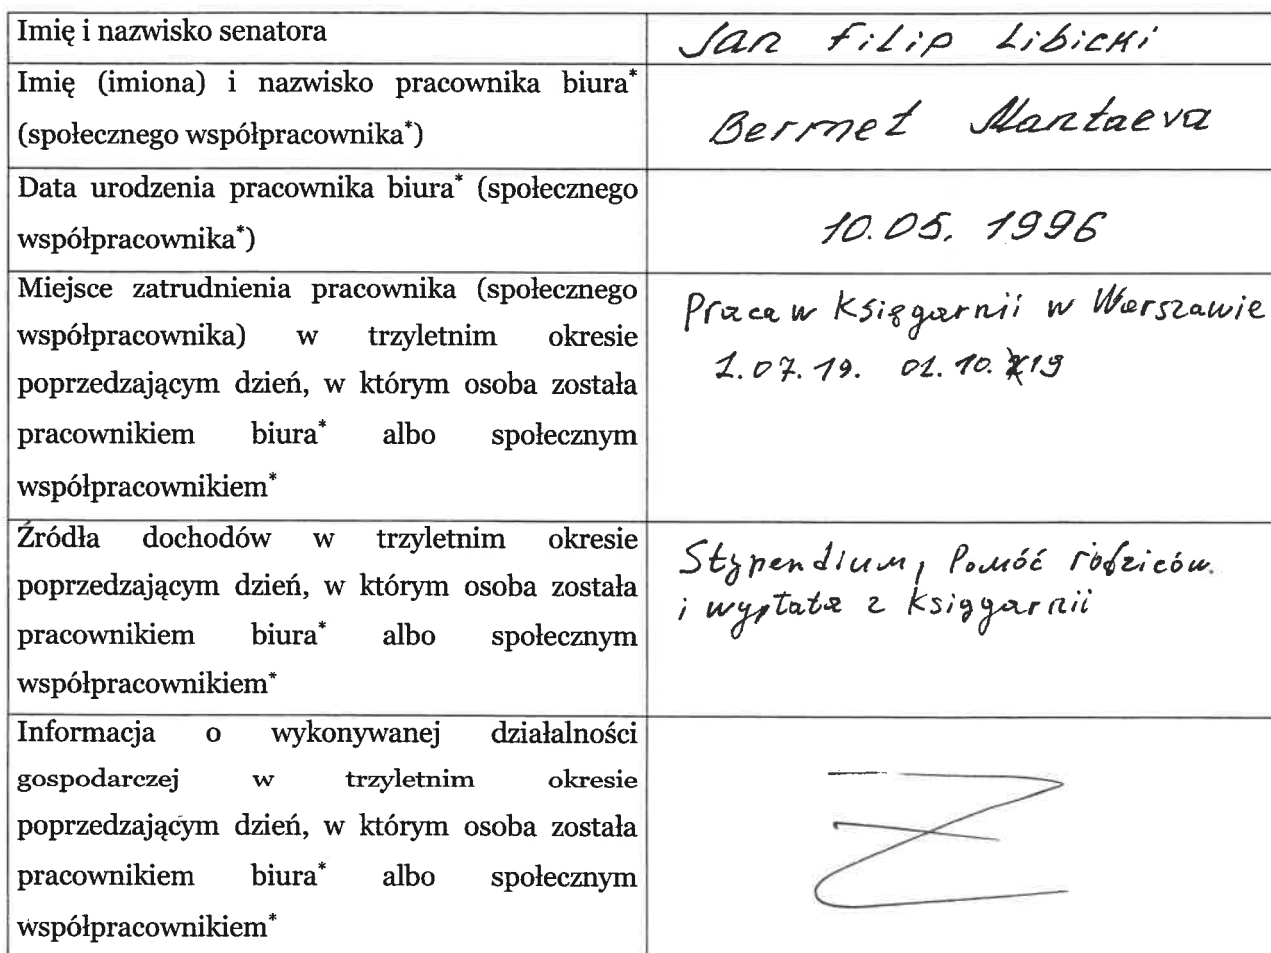 Imię i nazwisko senatora
Jan Filip Libicki
Imię (imiona) i nazwisko pracownika biura*
(społecznego współpracownika*)
Bermet Mantaeva
Data urodzenia pracownika biura* (społecznego
współpracownika*)
10.05.1996
Miejsce zatrudnienia pracownika (społecznego
współpracownika) w trzyletnim okresie
poprzedzającym dzień, w którym osoba została
pracownikiem biura* albo społecznym
współpracownikiem*
Praca w Księgarnii w Warszawie
1.07.19. 01.10.19
Źródła dochodów w trzyletnim okresie
poprzedzającym dzień, w którym osoba została
pracownikiem biura* albo społecznym
współpracownikiem*
Stypendium, Pomóć rodziców
i wypłata z Księgarnii
Informacja o wykonywanej działalności
gospodarczej w trzyletnim okresie
poprzedzającym dzień, w którym osoba została
pracownikiem biura* albo społecznym
współpracownikiem*